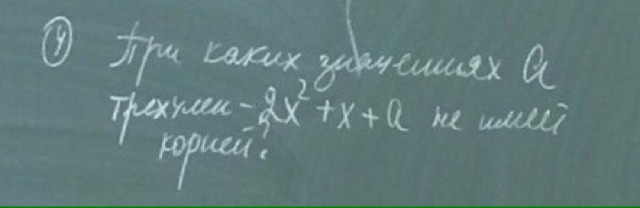 ④ При каких значениях а
трехчлен -2x² + x + a не имеет
корней?